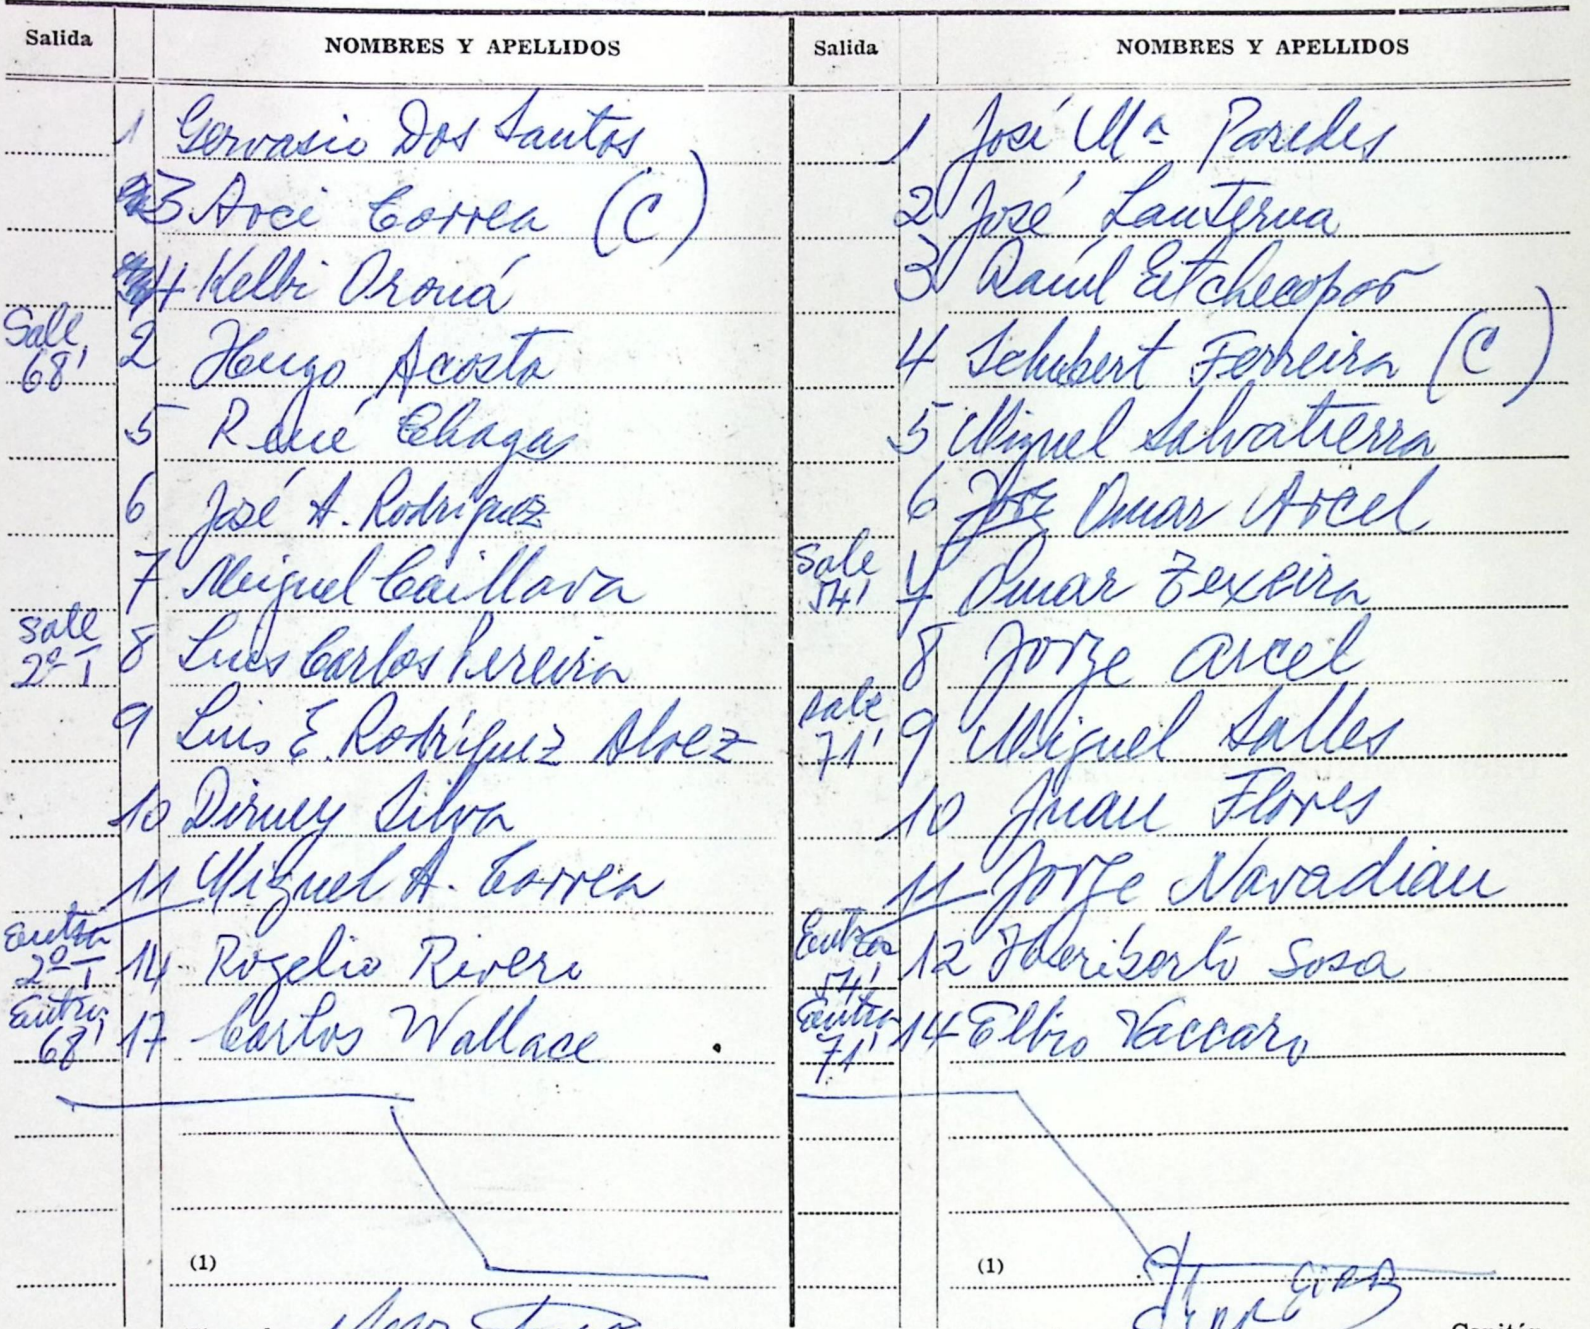 Salida NOMBRES Y APELLIDOS
1 Gervasio Dos Santos
3 Arci Correa (C)
4 Kelbi Oroná
Sale 68' 2 Hugo Acosta
5 René Chagas
6 José A. Rodríguez
7 Miguel Caillava
Sale 2º T 8 Luis Carlos Pereira
9 Luis E. Rodríguez Alvez
10 Dirney Silva
11 Miguel A. Correa
Entra 2º T 14 Rogelio Rivero
Entra 68' 17 Carlos Wallace
(1)
Salida NOMBRES Y APELLIDOS
1 José Mª Paredes
2 José Lanterna
3 Raúl Etchecopar
4 Schubert Ferreira (C)
5 Miguel Salvatierra
6 Omar Arcel
Sale 54' 7 Omar Texeira
8 Jorge Arcel
Sale 71' 9 Miguel Salles
10 Juan Flores
11 Jorge Navadian
Entra 54' 12 Heriberto Sosa
Entra 71' 14 Elbio Vaccaro
(1)